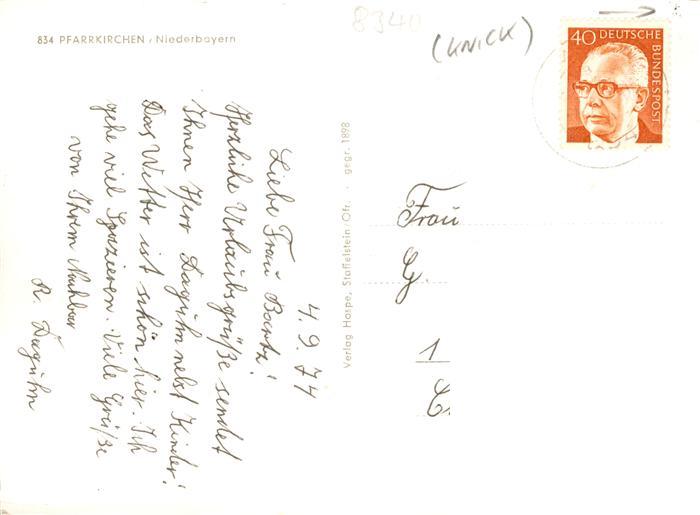 834 PFARRKIRCHEN / Niederbayern
8340
(KNICK)
40 DEUTSCHE
BUNDESPOST
4.9.74
Liebe Frau Bartz!
Herzliche Urlaubsgrüße sendet
Ihnen Herr Daguhn nebst Kinder!
Das Wetter ist schön hier. Ich
gehe viel Spazieren. Viele Grüße
von Ihrem Nachbar
R. Daguhn
Verlag Hospe, Staffelstein Ofr. · gegr. 1898
Frau
G.
1